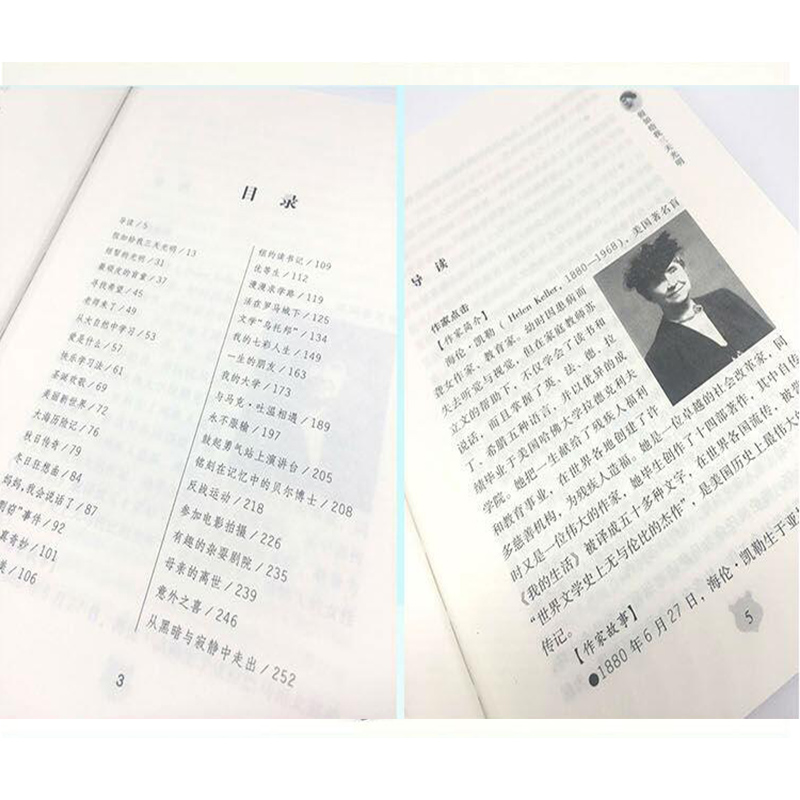 目 录
导读/5
假如给我三天光明/13
短暂的光明/31
最顽皮的盲童/37
寻找希望/45
老师来了/49
从大自然中学习/53
爱是什么/57
快乐学习法/61
圣诞欢歌/69
美丽新世界/72
大海历险记/76
秋日传奇/79
冬日狂想曲/84
妈妈,我会说话了/87
剽窃”事件/92
/101
美/106
纽约读书记/109
优等生/112
漫漫求学路/119
活在罗马城下/125
文学“乌托邦”/134
我的七彩人生/149
一生的朋友/163
我的大学/173
与马克·吐温相遇/189
永不服输/197
鼓起勇气站上演讲台/205
铭刻在记忆中的贝尔博士/208
反战运动/218
参加电影拍摄/226
有趣的杂耍剧院/235
母亲的离世/239
意外之喜/246
从黑暗与寂静中走出/252
3
假如给我三天光明
导 读
作家点击
【作家简介】
海伦·凯勒(Helen Keller, 1880—1968),美国著名盲
聋女作家、教育家。幼时因患病而
失去听觉与视觉,但在家庭教师苏
立文的帮助下,不仅学会了读书和
说话,而且掌握了英、法、德、拉
丁、希腊五种语言,并以优异的成
绩毕业于美国哈佛大学拉德克利夫
学院。她把一生献给了残疾人福利
和教育事业,在世界各地创建了许
多慈善机构,为残疾人造福。她是一位卓越的社会改革家,同
时又是一位伟大的作家,她毕生创作了十四部著作,其中自传
《我的生活》被译成五十多种文字,在世界各国流传,被学
“世界文学史上无与伦比的杰作”,是美国历史上最伟大的
传记。
【作家故事】
●1880年6月27日,海伦·凯勒生于亚
5